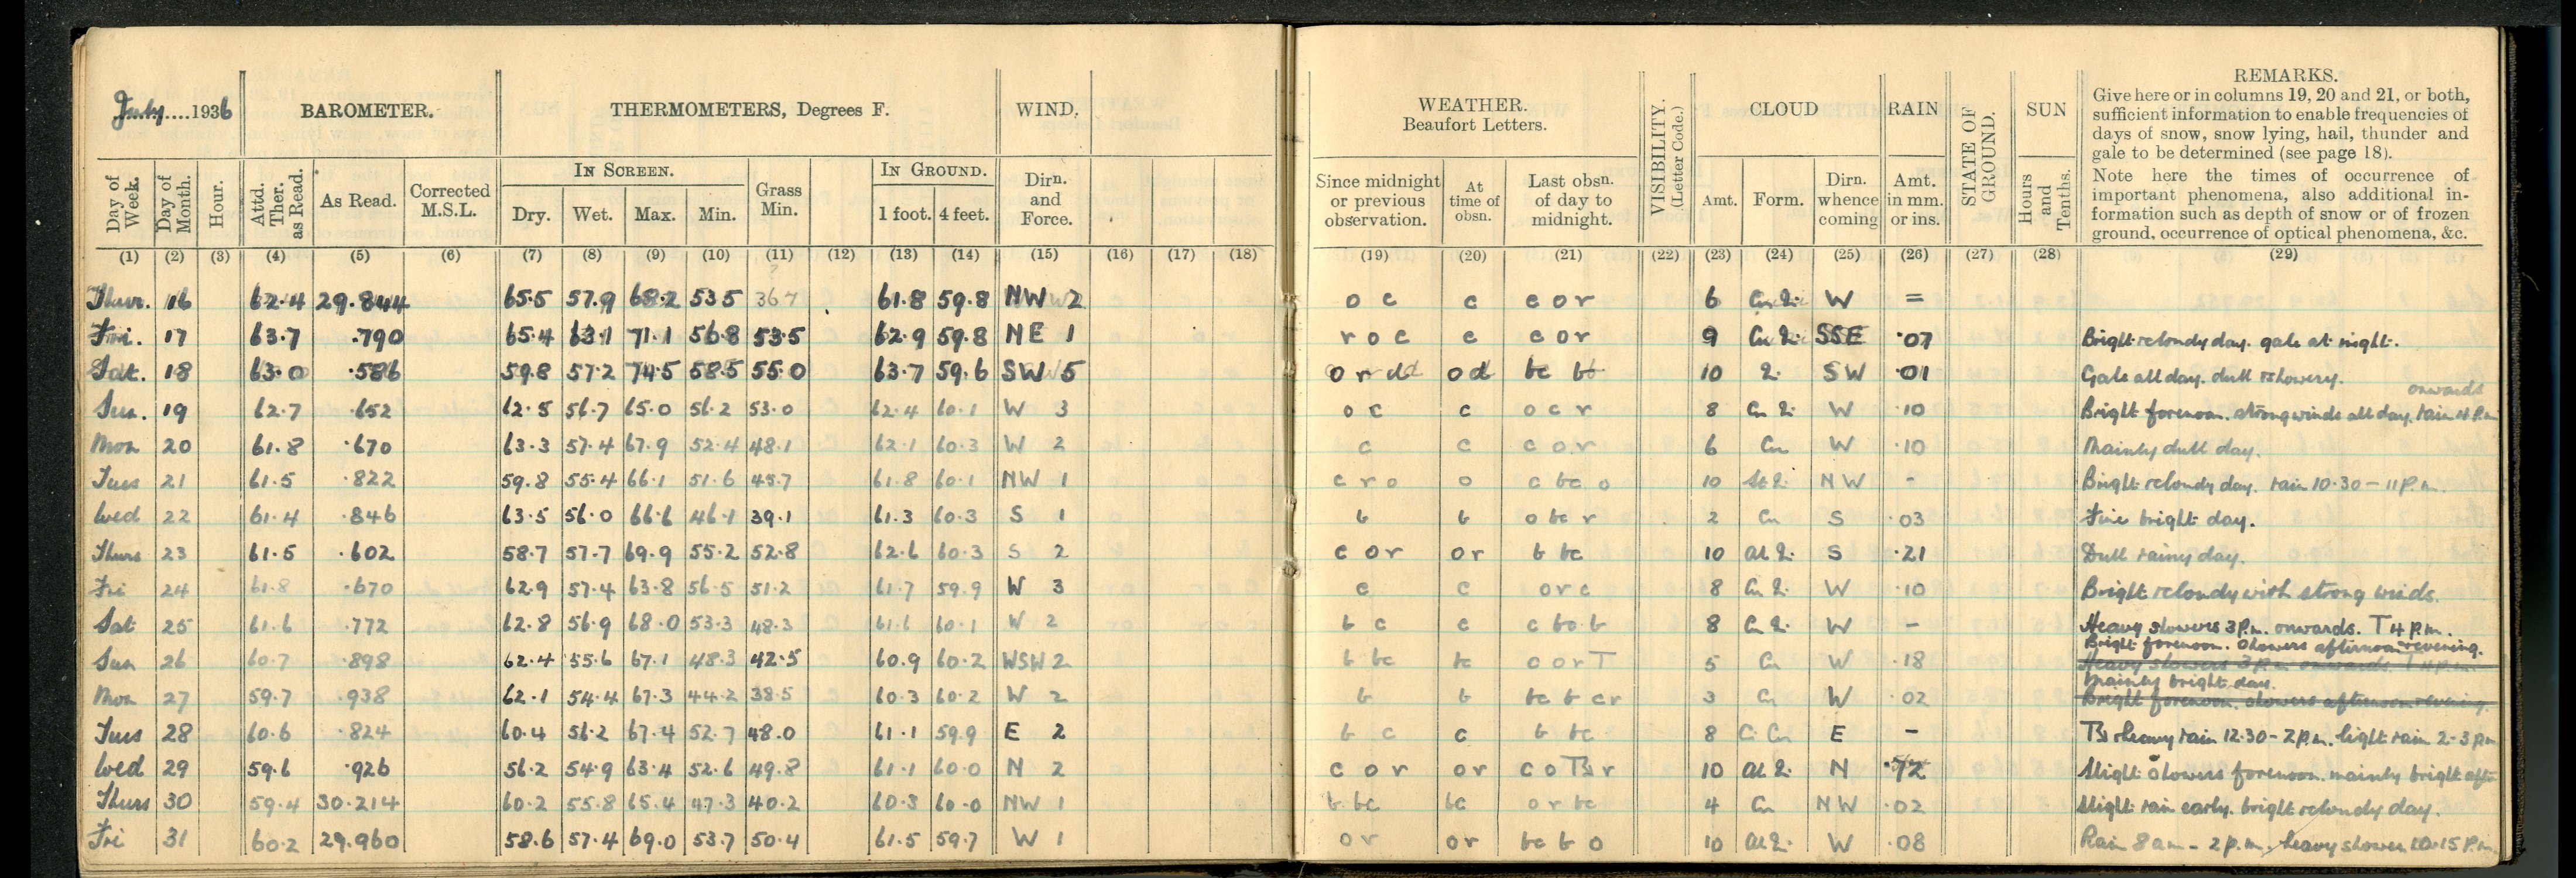 July....1936
BAROMETER.
THERMOMETERS, Degrees F.
WIND.
Day of Week.
Day of Month.
Hour.
Attd. Ther. as Read.
As Read.
Corrected M.S.L.
IN SCREEN.
Dry. Wet. Max. Min.
Grass Min.
IN GROUND.
1 foot. 4 feet.
Dirn. and Force.
(1) (2) (3) (4) (5) (6) (7) (8) (9) (10) (11) (12) (13) (14) (15) (16) (17) (18)
Thur. 16 62.4 29.844 65.5 57.9 68.2 53.5 36.7 61.8 59.8 NW 2
Fri. 17 63.7 .790 65.4 63.1 71.1 56.8 53.5 62.9 59.8 NE 1
Sat. 18 63.0 .586 59.8 57.2 74.5 58.5 55.0 63.7 59.6 SW 5
Sun. 19 62.7 .652 62.5 56.7 65.0 56.2 53.0 62.4 60.1 W 3
Mon 20 61.8 .670 63.3 57.4 67.9 52.4 48.1 62.1 60.3 W 2
Tues 21 61.5 .822 59.8 55.4 66.1 51.6 45.7 61.8 60.1 NW 1
Wed 22 61.4 .846 63.5 56.0 66.6 46.1 39.1 61.3 60.3 S 1
Thurs 23 61.5 .602 58.7 57.7 69.9 55.2 52.8 62.6 60.3 S 2
Fri 24 61.8 .670 62.9 57.4 63.8 56.5 51.2 61.7 59.9 W 3
Sat 25 61.6 .772 62.8 56.9 68.0 53.3 48.3 61.6 60.1 W 2
Sun 26 60.7 .898 62.4 55.6 67.1 48.3 42.5 60.9 60.2 WSW 2
Mon 27 59.7 .938 62.1 54.4 67.3 44.2 38.5 60.3 60.2 W 2
Tues 28 60.6 .824 60.4 56.2 67.4 52.7 48.0 61.1 59.9 E 2
Wed 29 59.6 .926 56.2 54.9 63.4 52.6 49.8 61.1 60.0 N 2
Thurs 30 59.4 30.214 60.2 55.8 65.4 47.3 40.2 60.3 60.0 NW 1
Fri 31 60.2 29.960 58.6 57.4 69.0 53.7 50.4 61.5 59.7 W 1
WEATHER.
Beaufort Letters.
VISIBILITY.
(Letter Code.)
CLOUD
RAIN
STATE OF GROUND.
SUN
REMARKS.
Give here or in columns 19, 20 and 21, or both,
sufficient information to enable frequencies of
days of snow, snow lying, hail, thunder and
gale to be determined (see page 18).
Note here the times of occurrence of
important phenomena, also additional in-
formation such as depth of snow or of frozen
ground, occurrence of optical phenomena, &c.
Since midnight or previous observation.
At time of obsn.
Last obsn. of day to midnight.
Amt. Form. Dirn. whence coming
Amt. in mm. or ins.
Hours and Tenths.
(19) (20) (21) (22) (23) (24) (25) (26) (27) (28) (29)
o c c c o r 6 W =
r o c c c o r 9 SSE .07 Bright & cloudy day. gale at night.
o r d od bc 10 SW .01 Gale all day. dull & showery.
onwards
o c c o c r 8 W .10 Bright forenoon. strong winds all day. rain 4 P.m
c c c o r 6 Cu W .10 Mainly dull day.
c r o o c bc o 10 NW - Bright & cloudy day. rain 10.30 - 11 P.m.
b b o bc r 2 Cu S .03 Fine bright day.
c o r or b bc 10 S .21 Dull rainy day.
c c o r c 8 W .10 Bright & cloudy with strong winds.
b c c c bc b 8 W - Heavy showers 3 P.m. onwards. T 4 P.m.
Bright forenoon. Showers afternoon & evening.
b bc bc c o r T 5 Cu W .18 Heavy showers 3 P.m onwards. T 4 P.m.
Mainly bright day.
b b bc b cr 3 Cu W .02 Bright forenoon. showers afternoon & evening.
b c c b bc 8 E - & heavy rain 12.30 - 2 P.m. light rain 2-3 P.m
c o r or c o r 10 N .72 Slight showers forenoon. mainly bright
b bc bc o r bc 4 Cu NW .02 Slight rain early. bright & cloudy day.
o r or bc b o 10 W .08 Rain 8 am - 2 p.m. heavy shower 10.15 P.m.